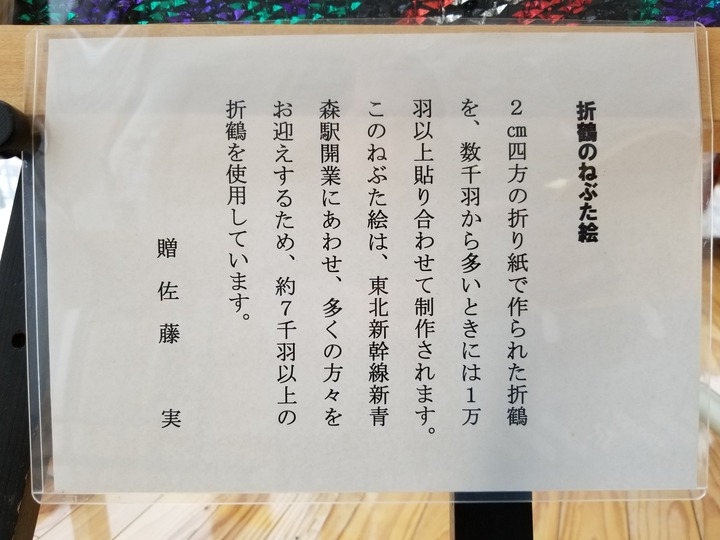 折鶴のねぶた絵
2㎝四方の折り紙で作られた折鶴
を、数千羽から多いときには1万
羽以上貼り合わせて制作されます。
このねぶた絵は、東北新幹線新青
森駅開業にあわせ、多くの方々を
お迎えするため、約7千羽以上の
折鶴を使用しています。
贈 佐 藤　実